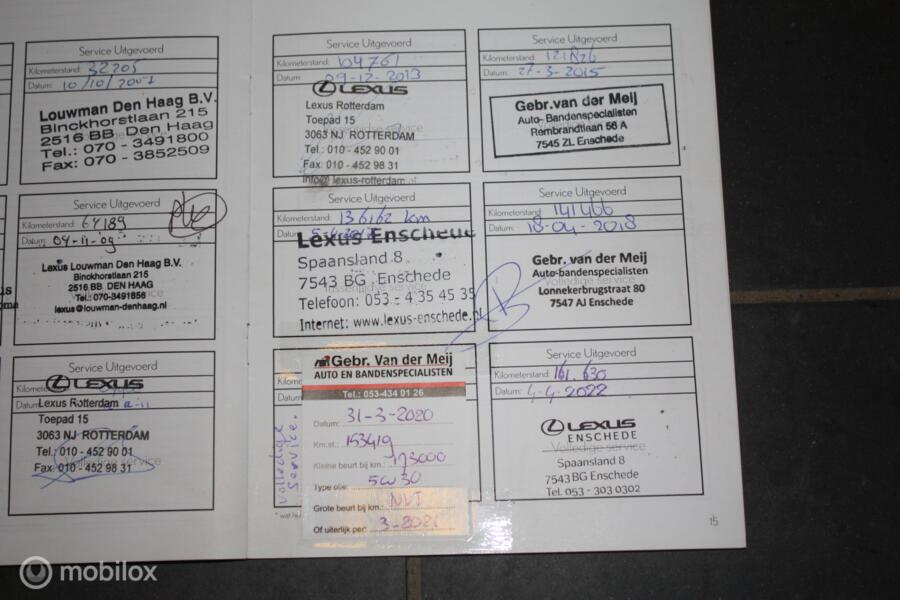 Service Uitgevoerd
Kilometerstand: 32205
Datum: 10/10/2007
Louwman Den Haag B.V.
Binckhorstlaan 215
2516 BB Den Haag
Tel.: 070 - 3491800
Fax: 070 - 3852509
Service Uitgevoerd
Kilometerstand: 64189
Datum: 04-11-09
Lexus Louwman Den Haag B.V.
Binckhorstlaan 215
2516 BB DEN HAAG
Tel.: 070-3491856
lexus@louwman-denhaag.nl
Service Uitgevoerd
LEXUS
Datum:
Lexus Rotterdam
Toepad 15
3063 NJ ROTTERDAM
Tel.: 010 - 452 90 01
Fax: 010 - 452 98 31
Service Uitgevoerd
Kilometerstand: 104761
Datum: 09-12-2013
LEXUS
Lexus Rotterdam
Toepad 15
3063 NJ ROTTERDAM
Tel.: 010 - 452 90 01
Fax: 010 - 452 98 31
info@lexus-rotterdam.nl
Service Uitgevoerd
Kilometerstand: 121826
Datum: 27-3-2015
Gebr. van der Meij
Auto- Bandenspecialisten
Rembrandtlaan 56 A
7545 ZL Enschede
Service Uitgevoerd
Kilometerstand: 136162 km
Datum:
Lexus Enschede
Spaansland 8
7543 BG Enschede
Telefoon: 053 - 4 35 45 35
Internet: www.lexus-enschede.nl
Service Uitgevoerd
Kilometerstand: 141466
Datum: 18-04-2018
Gebr. van der Meij
Auto-bandenspecialisten
Volledige service
Lonnekerbrugstraat 80
7547 AJ Enschede
Gebr. Van der Meij
AUTO EN BANDENSPECIALISTEN
Tel.: 053-434 01 26
Datum: 31-3-2020
Km.st.: 153419
Kleine beurt bij km.: 173000
Type olie: 5w30
Grote beurt bij km.: NVT
Of uiterlijk per: 3-2021
Volledige
Service.
Service Uitgevoerd
Kilometerstand: 161.630
Datum: 4-4-2022
LEXUS
ENSCHEDE
Volledige service
Spaansland 8
7543 BG Enschede
Tel. 053 - 303 0302
15
mobilox